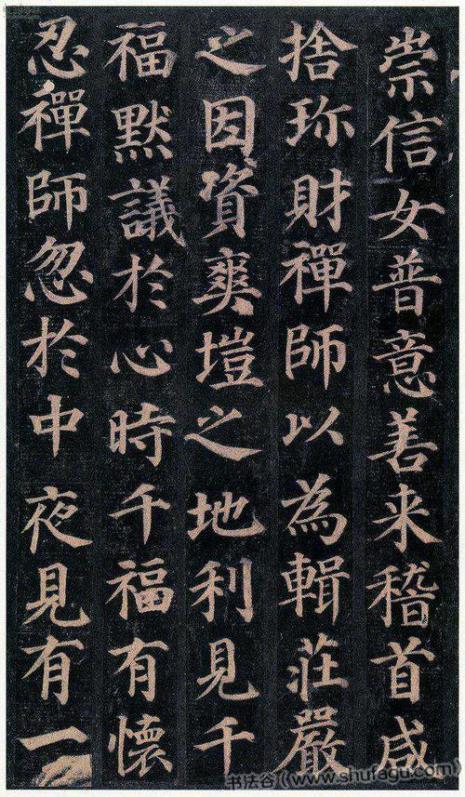 崇信女普意善来稽首咸
捨珎財禪師以為輯莊嚴
之因資爽塏之地利見千
福默議於心時千福有懷
忍禪師忽於中夜見有一
书法谷(www.shufagu.com